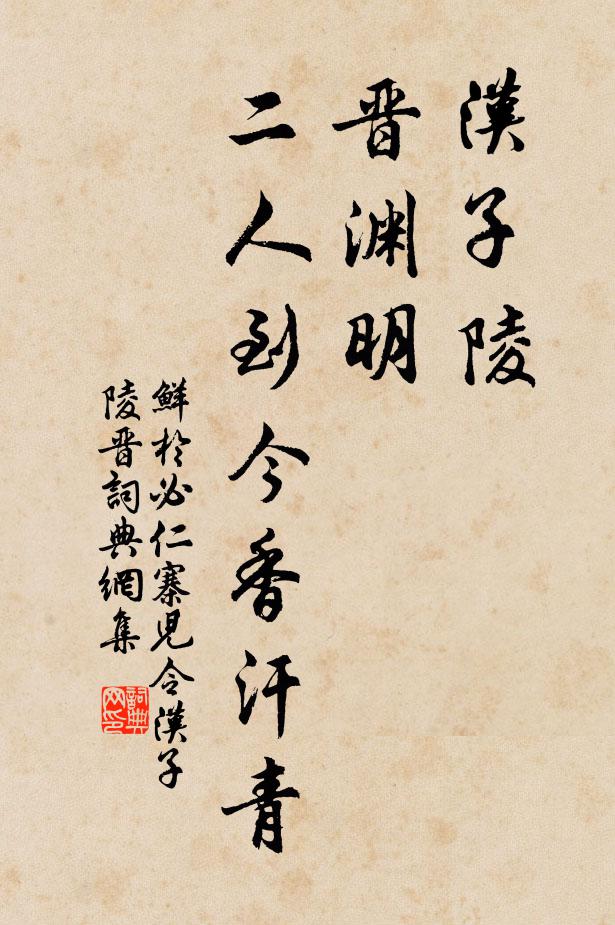 漢子陵
晋渊明
二人到今香汗青
鮮於必仁寨児令漢子
陵晋詞典網集
詞典
网印